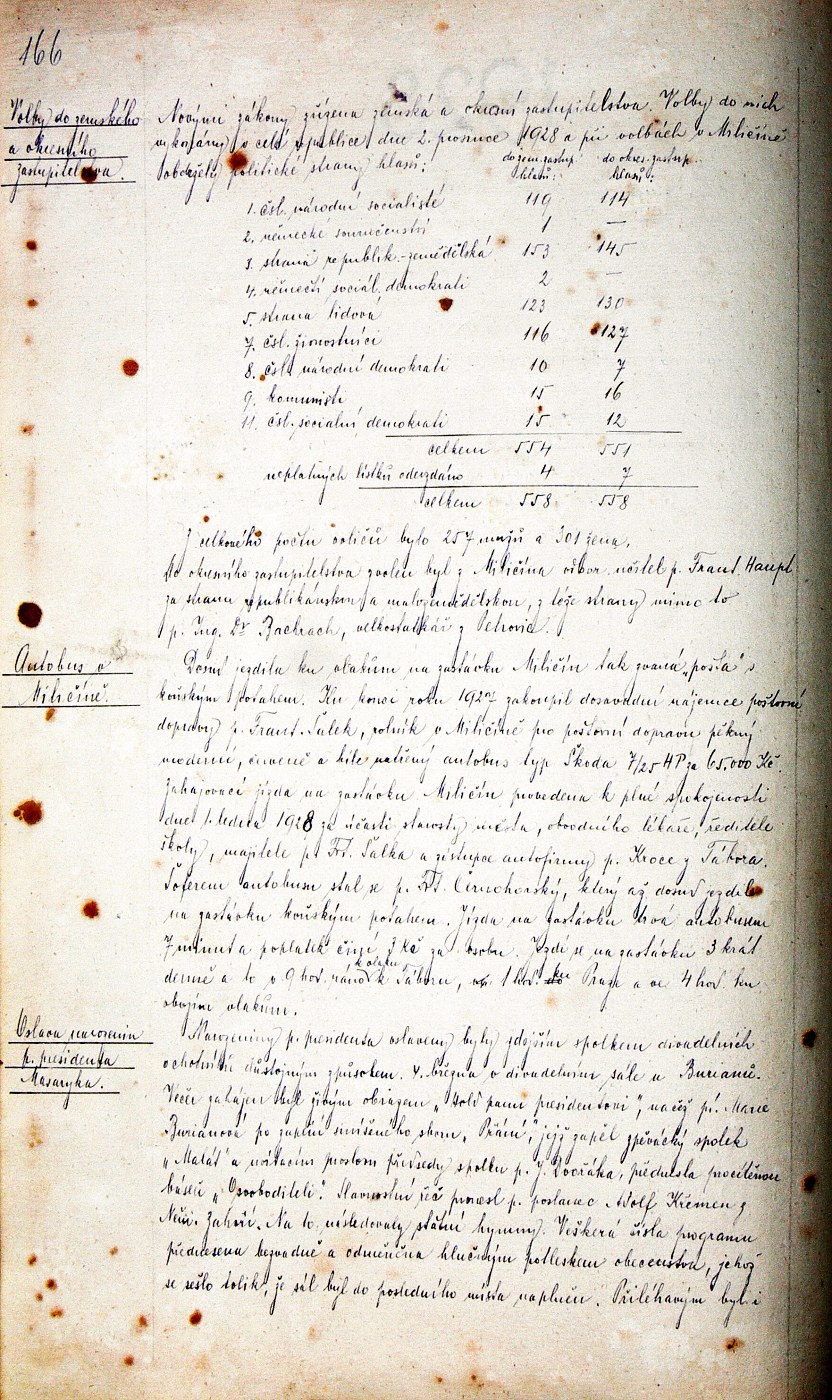 166
Volby do zemského
a okresního
zastupitelstva.
Novými zákony zřízena zemská a okresní zastupitelstva. Volby do nich
vykonány v celé republice dne 2. prosince 1928 a při volbách v Miličíně
obdržely politické strany hlasů:
do zem. zastup. do okres. zastup.
hlasů: hlasů:
1. čsl. národní socialisté 119 114
2. německé souručenství 1 —
3. strana republik.-zemědělská 153 145
4. němečtí sociál. demokrati 2 —
5. strana lidová 123 130
7. čsl. živnostníci 116 127
8. čsl. národní demokrati 10 7
9. komunisti 15 16
11. čsl. socialní demokrati 15 12
celkem 554 551
neplatných lístků odevzdáno 4 7
celkem 558 558
Z celkového počtu voličů bylo 257 mužů a 301 žena.
Do okresního zastupitelstva zvolen byl z Miličína odbor. učitel p. Frant. Haupt
za stranu republikánskou a malozemědělskou, z téže strany mimo to
p. Ing. Dr Bachrach, velkostatkář z Petrovic.
Autobus v
Miličíně.
Dosud jezdila ku vlakům na zastávku Miličín tak zvaná „pošta" s
koňským potahem. Ku konci roku 1927 zakoupil dosavadní nájemce poštovní
dopravy p. Frant. Šálek, rolník v Miličíně pro poštovní dopravu pěkný
moderní, červeně a bíle natřený autobus typ Škoda 7/25 HP za 65.000 Kč.
Zahajovací jízda na zastávku Miličín provedena k plné spokojenosti
dne 1. ledna 1928 za účasti starosty města, obvodního lékaře, ředitele
školy, majitele p. Frt. Šálka a zástupce autofirmy p. Kroce z Tábora.
Šoférem autobusu stal se p. Frt. Černohorský, který až dosud jezdil
na zastávku koňským potahem. Jízda na zastávku trvá autobusem
7 minut a poplatek činí 3 Kč za osobu. Jezdí se na zastávku 3 krát
denně a to v 9 hod. ráno k vlaku k Táboru, v 1 hod. ku Praze a ve 4 hod. ku
obojím vlakům.
Oslava narozenin
p. presidenta
Masaryka.
Narozeniny p. presidenta oslaveny byly zdejším spolkem divadelních
ochotníků důstojným způsobem. 4. března v divadelním sále u Burianů.
Večer zahájen byl živým obrazem „Hold panu presidentovi", načež pí. Marie
Burianová po zapění smíšeného sboru „Přání", jejž zapěl zpěvácký spolek
„Malát" a uvítacím proslovu předsedy spolku p. J. Dvořáka, přednesla procítěnou
báseň „Osvoboditeli". Slavnostní řeč pronesl p. poslanec Adolf Křemen z
Něm. Záhoří. Na to následovaly státní hymny. Veškerá čísla programu
přednesena bezvadně a odměněna hlučným potleskem obecenstva, jehož
se sešlo tolik, že sál byl do posledního místa naplněn. Přiléhavým byl i